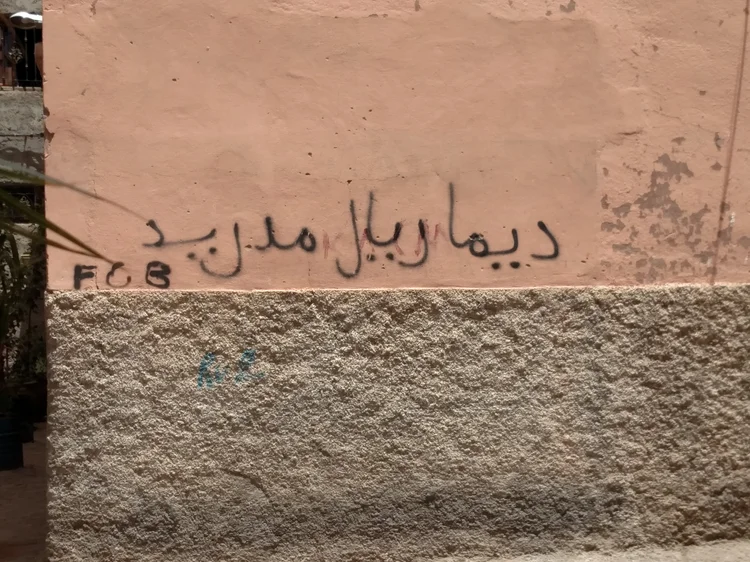 ديما ريال مدريد
FCB